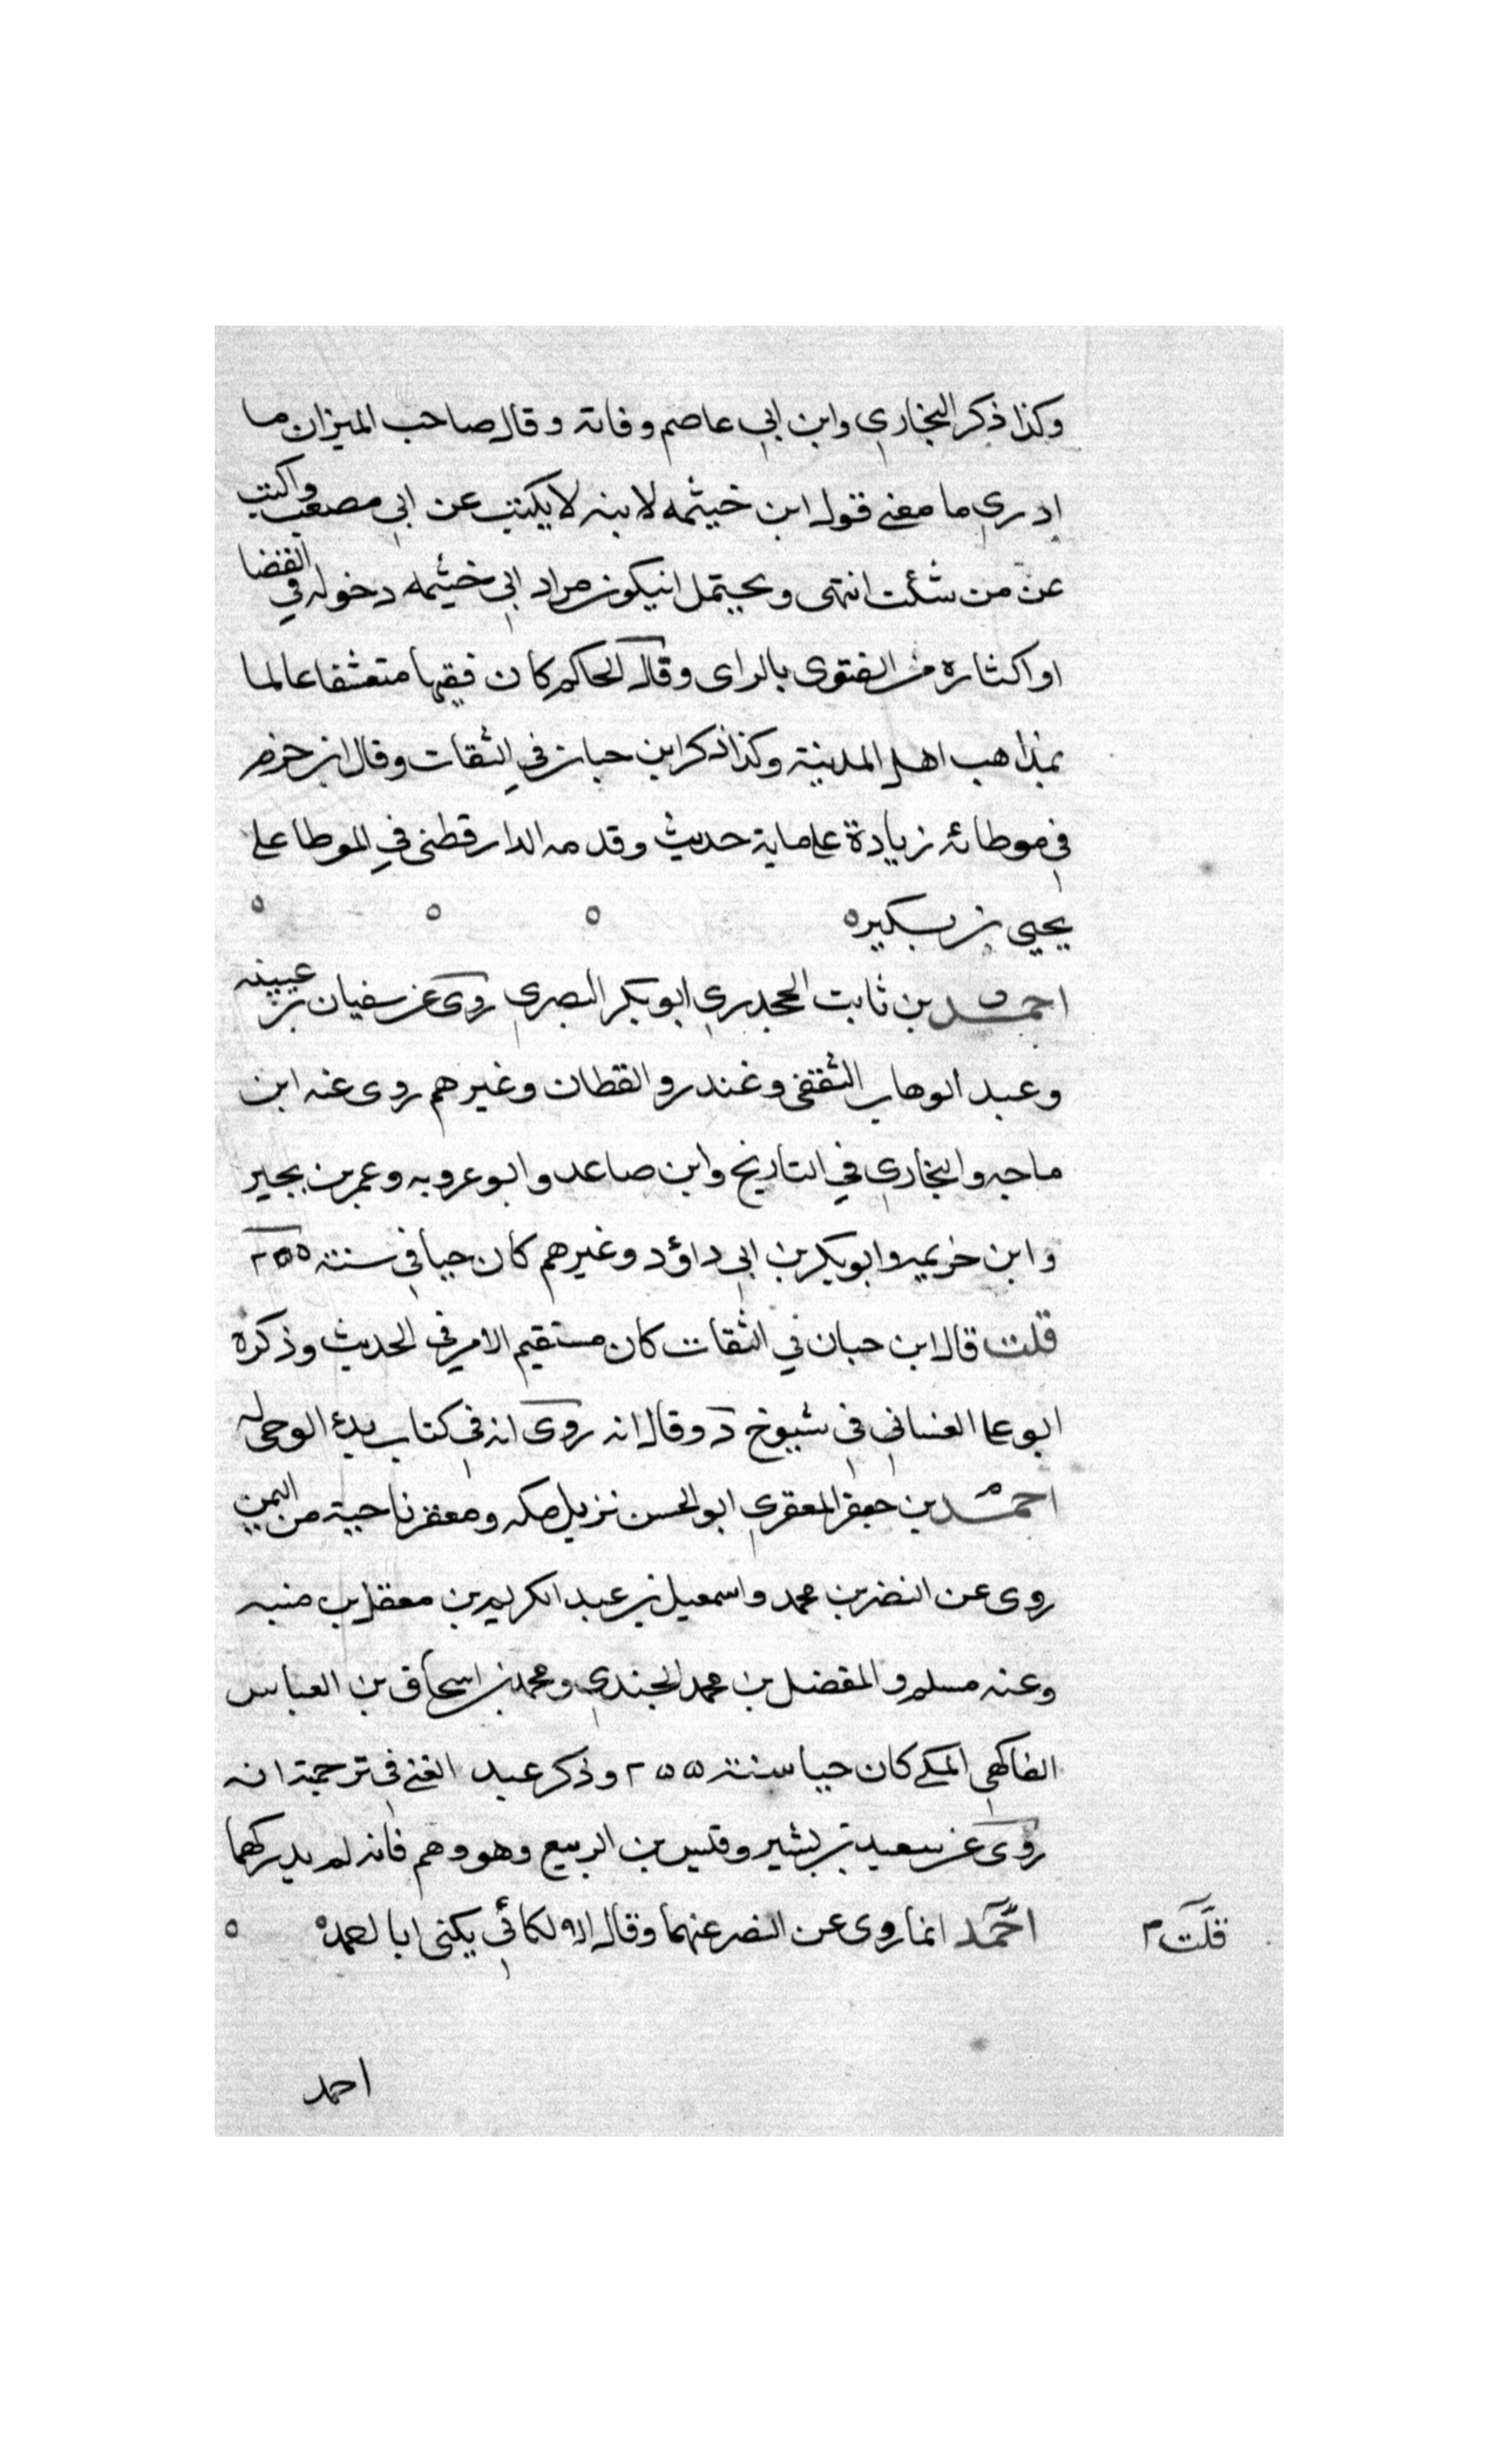 وكذا ذكر البخاري وابن ابي عاصم وفاته وقال صاحب الميزان ما
ادري ما معنى قول ابن خيثمه لابنه لا يكتب عن ابي مصعب واكتب
عن من شئت انتهى ويحتمل انيكون مراد ابي خيثمه دخوله في القضا
او اكثاره من الفتوى بالراى وقال الحاكم كان فقيها متقشفا عالما
بمذاهب اهل المدينة وكذا ذكر ابن حبان في الثقات وقال ابن حزم
في موطائه زيادة على ماية حديث وقدمه الدارقطنى في الموطا على
يحيى بن بكيره
احمد بن ثابت الجحدري ابو بكر البصري روى عن سفيان بن عيينه
وعبد الوهاب الثقفي وغندر والقطان وغيرهم روى عنه ابن
ماجه والبخاري في التاريخ وابن صاعد وابو عروبه وعمر بن بجير
وابن خزيمه وابو بكر بن ابي داؤد وغيرهم كان حيا في سنة ٢٥٥
قلت قال ابن حبان في الثقات كان مستقيم الامر في الحديث وذكره
ابو على الغساني في شيوخ د وقال انه روى انه في كتاب بدء الوحى له
احمد بن جعفر المعقري ابو الحسن نزيل مكه ومعقر ناحية من اليمن
روى عن النضر بن محمد واسمعيل بن عبد الكريم بن معقل بن منبه
وعنه مسلم والمفضل بن محمد الجندي ومحمد بن اسحاق بن العباس
الفاكهي المكي كان حيا سنة ٢٥٥ وذكر عبد الغني في ترجمته انه
روى عن سعيد بن بشير وقيس بن الربيع وهو وهم فانه لم يدركهما
قلت ٣ احمد انما روى عن النضر عنهما وقال اللالكائي يكنى ابا
احمد